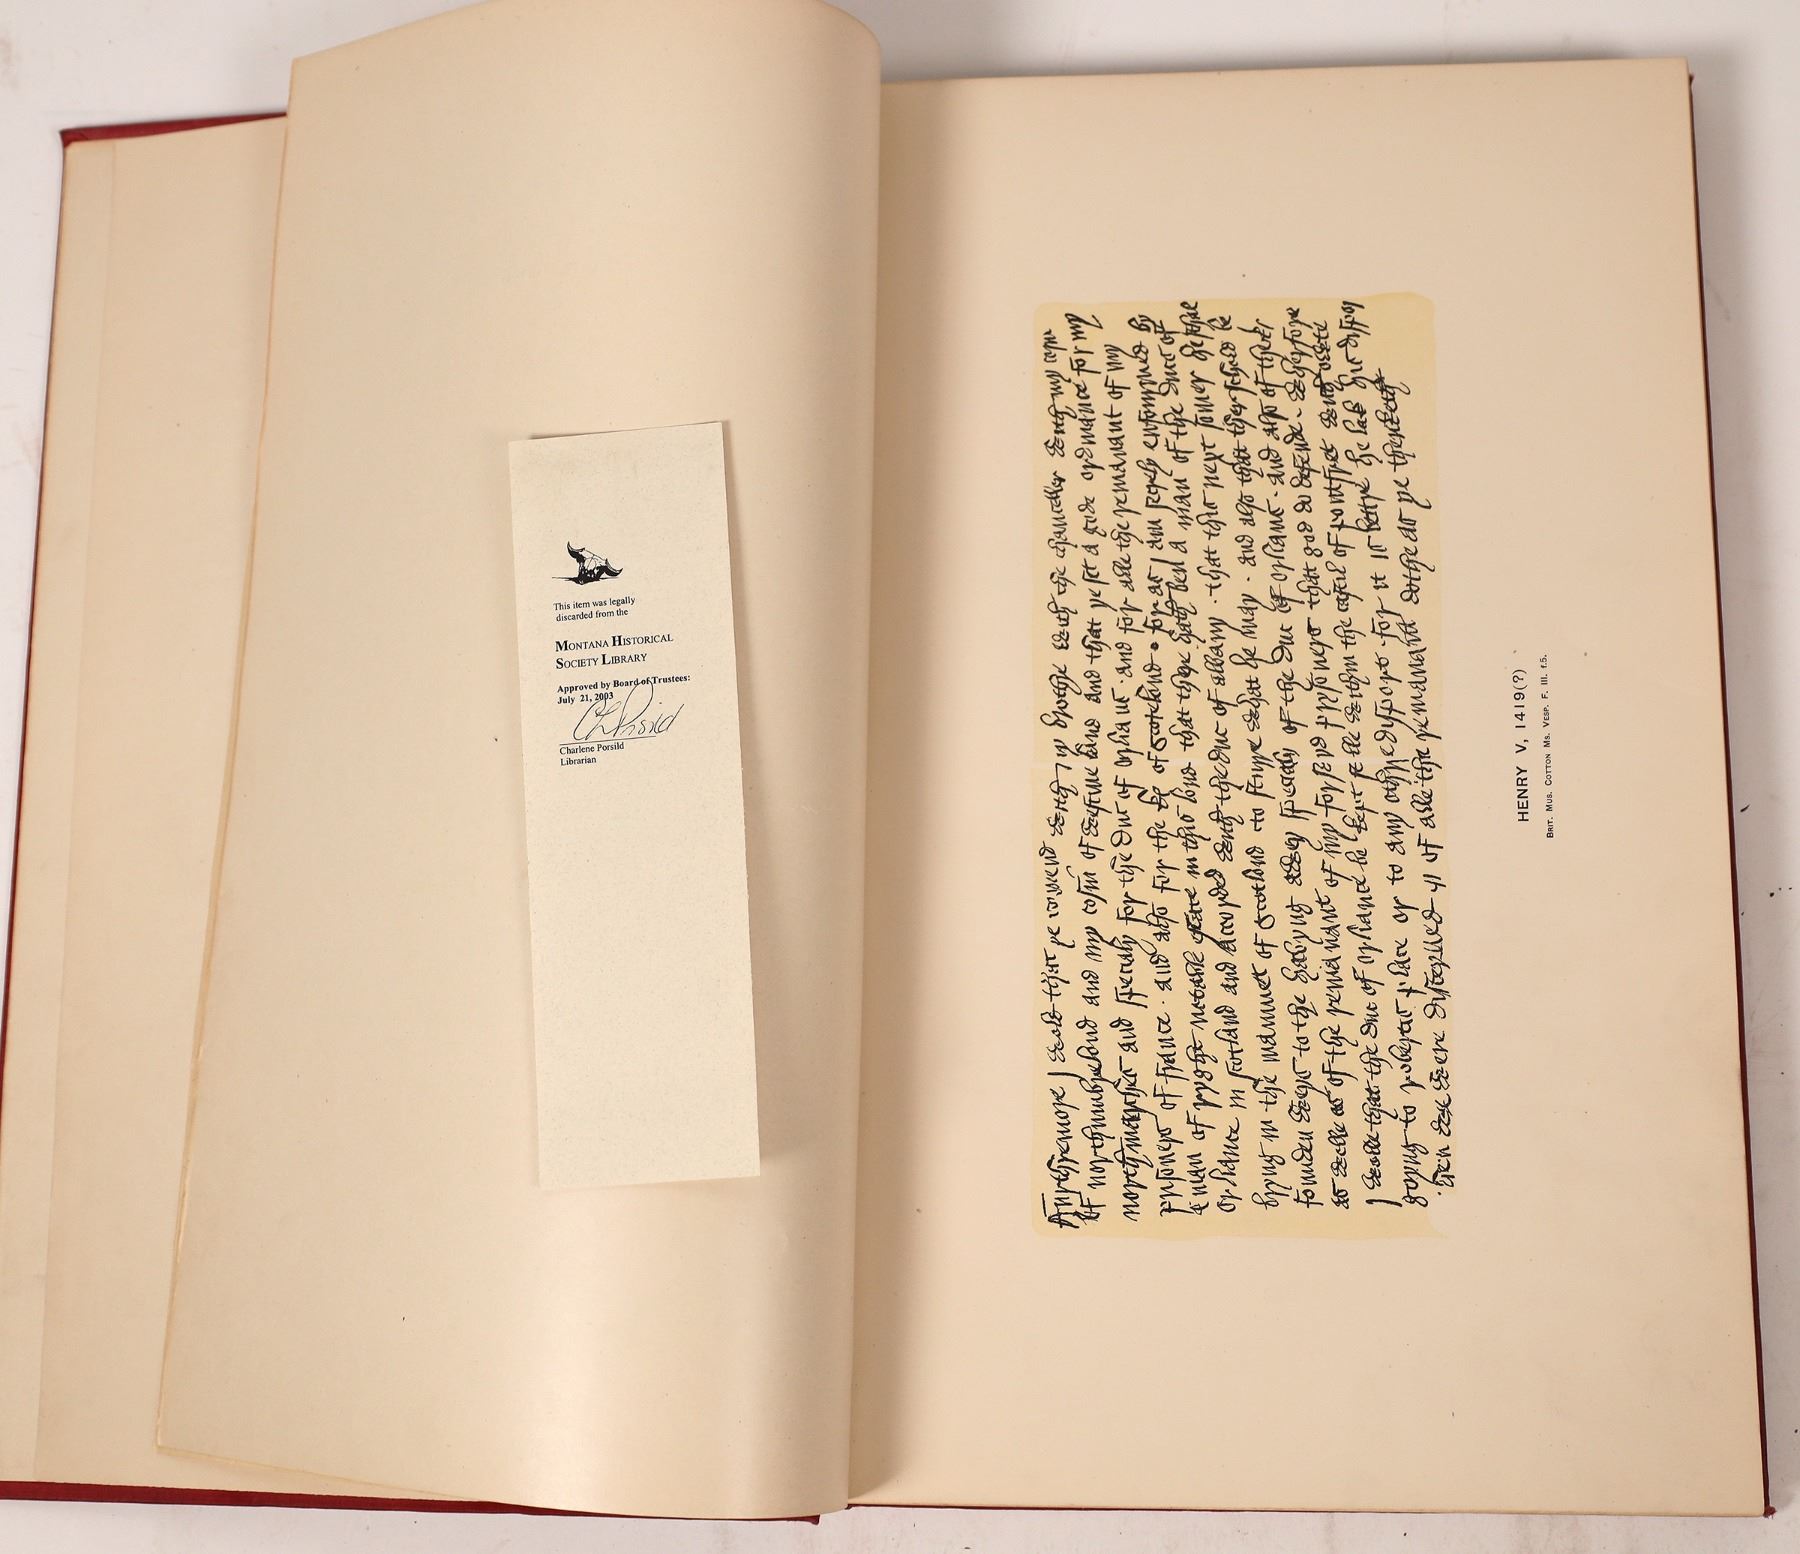 This item was legally
discarded from the
MONTANA HISTORICAL
SOCIETY LIBRARY
Approved by Board of Trustees:
July 21, 2003
C Porsild
Charlene Porsild
Librarian
Furthremore I wold that ye comend with my brothre with the chanceller with my cosin
Of northumbrelond and my cosin of westmerland and that ye set a gode ordinance for my
north marches and specialy for the duc of orlians · and for alle the remanant of my
prisoners of france · and also for the k of scotelond · for as I am secrely enfourmed by
a man of ryght notable estate in this lond that there hath ben a man of the ducs of
orliance in scotland and accorded with the duc of albany · that this next somer he schal
bryng in the mamuet of scotland to sturre what he may · and also that ther schold be
founden weys to the havyng awey specialy of the duc of orlians · and also of the k
as welle as of the remanant of my forsayd prysoners that god do defende · wherfore
I wolle that the duc of orliance be kept stille withyn the castil of pontfret with owte
goyng to robertis place or to any othre disport · for it is bettre he lak his disport
then we were disceyved of alle the remanant dothe as ye thenketh
HENRY V, 1419(?)
BRIT. MUS. COTTON MS. VESP. F. III. f.5.